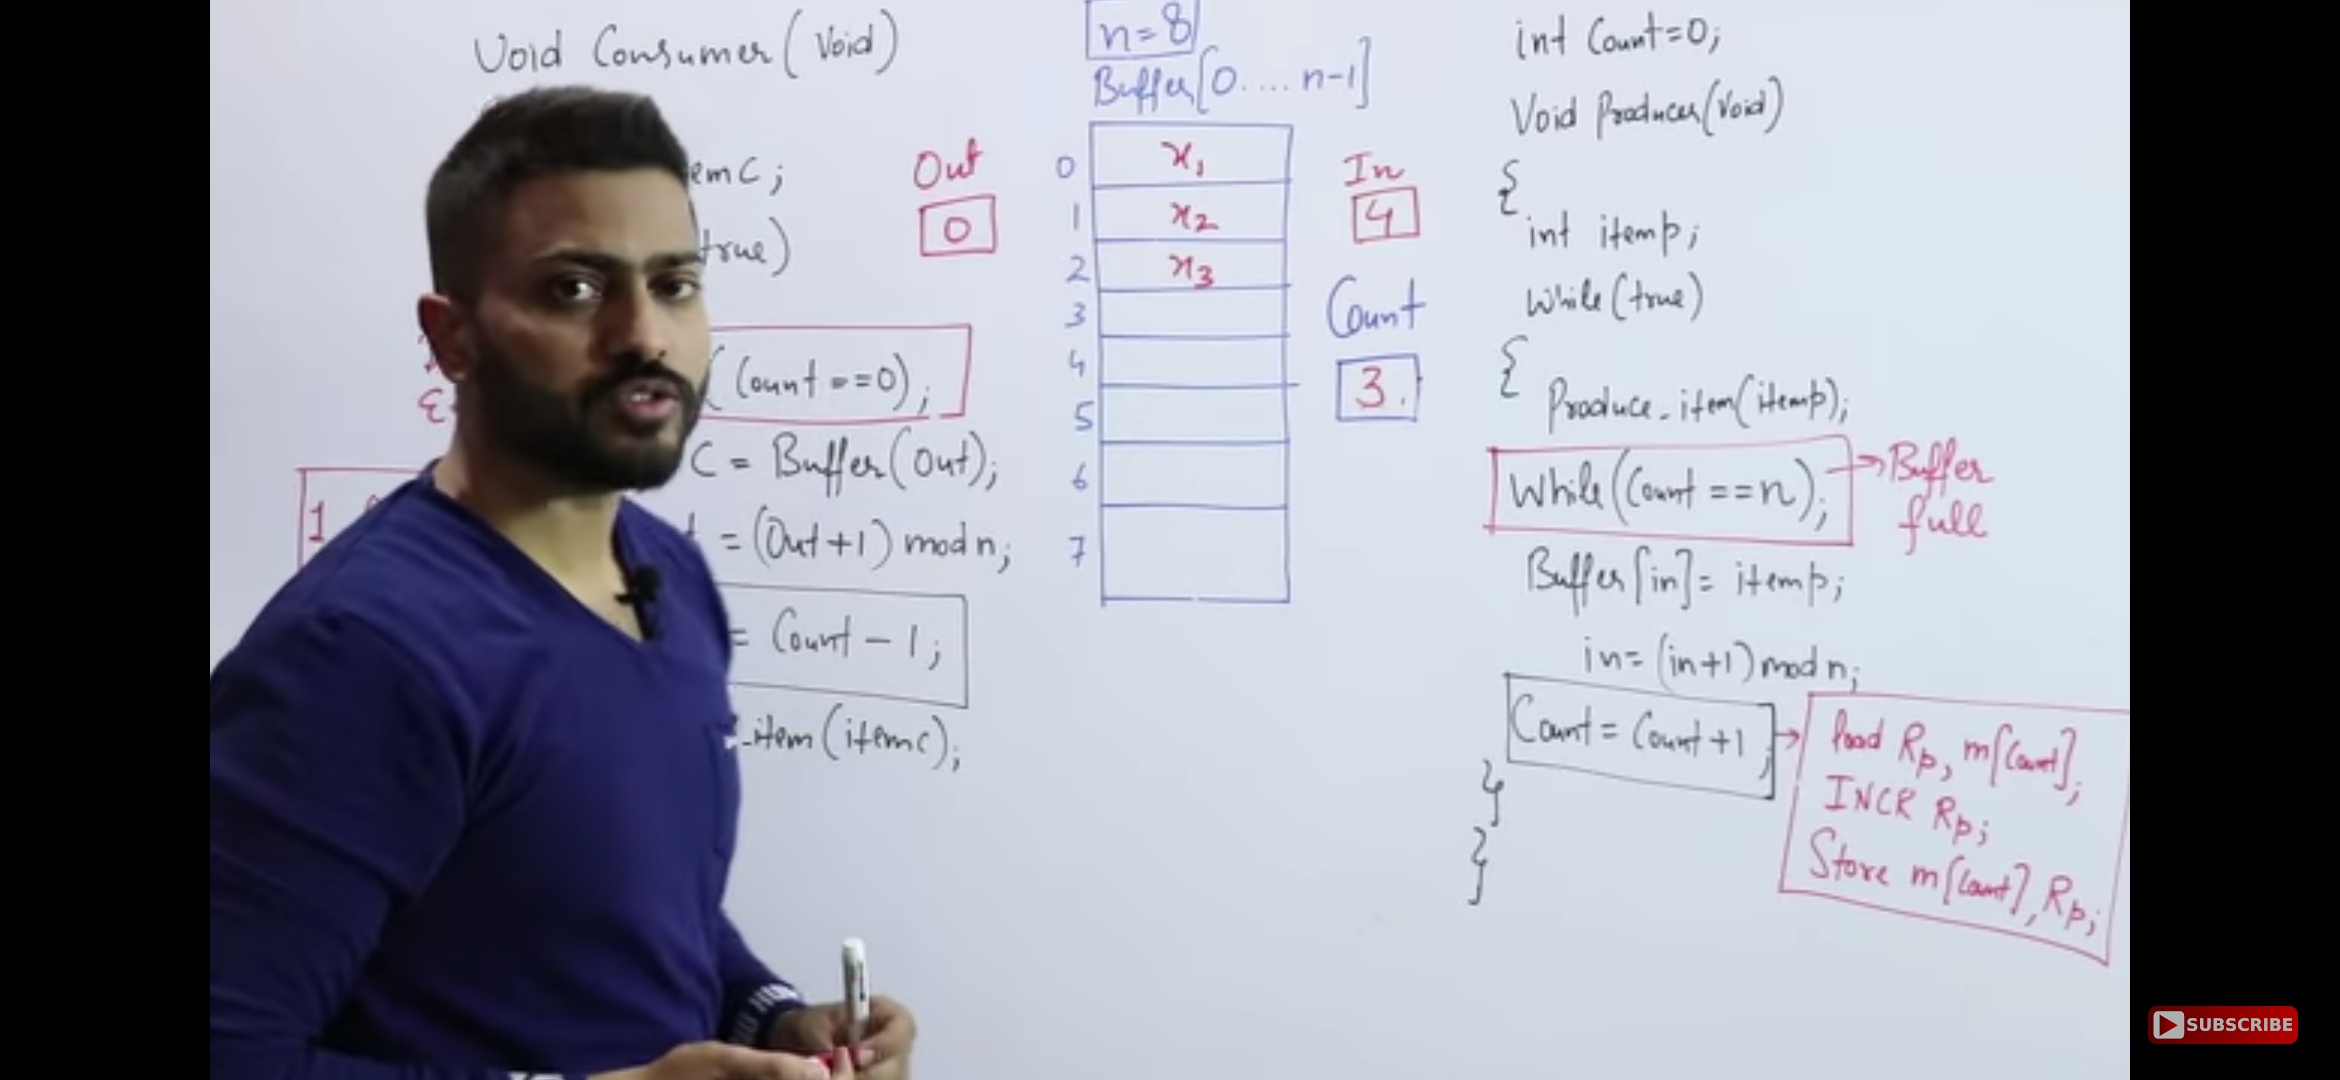 Void Consumer(Void)
emc;
true)
(Count==0);
C = Buffer(Out);
= (Out+1) mod n;
= Count - 1;
_item(itemc);
Out
0
n=8
Buffer[0....n-1]
0 x1
1 x2
2 x3
3
4
5
6
7
In
4
Count
3.
1
int Count=0;
Void Producer(Void)
{
int itemp;
While(true)
{
Produce_item(itemp);
While(Count==n); → Buffer full
Buffer[in]= itemp;
in= (in+1) mod n;
Count = Count+1; →
load Rp, m[Count];
INCR Rp;
Store m[Count], Rp;
}
}
SUBSCRIBE